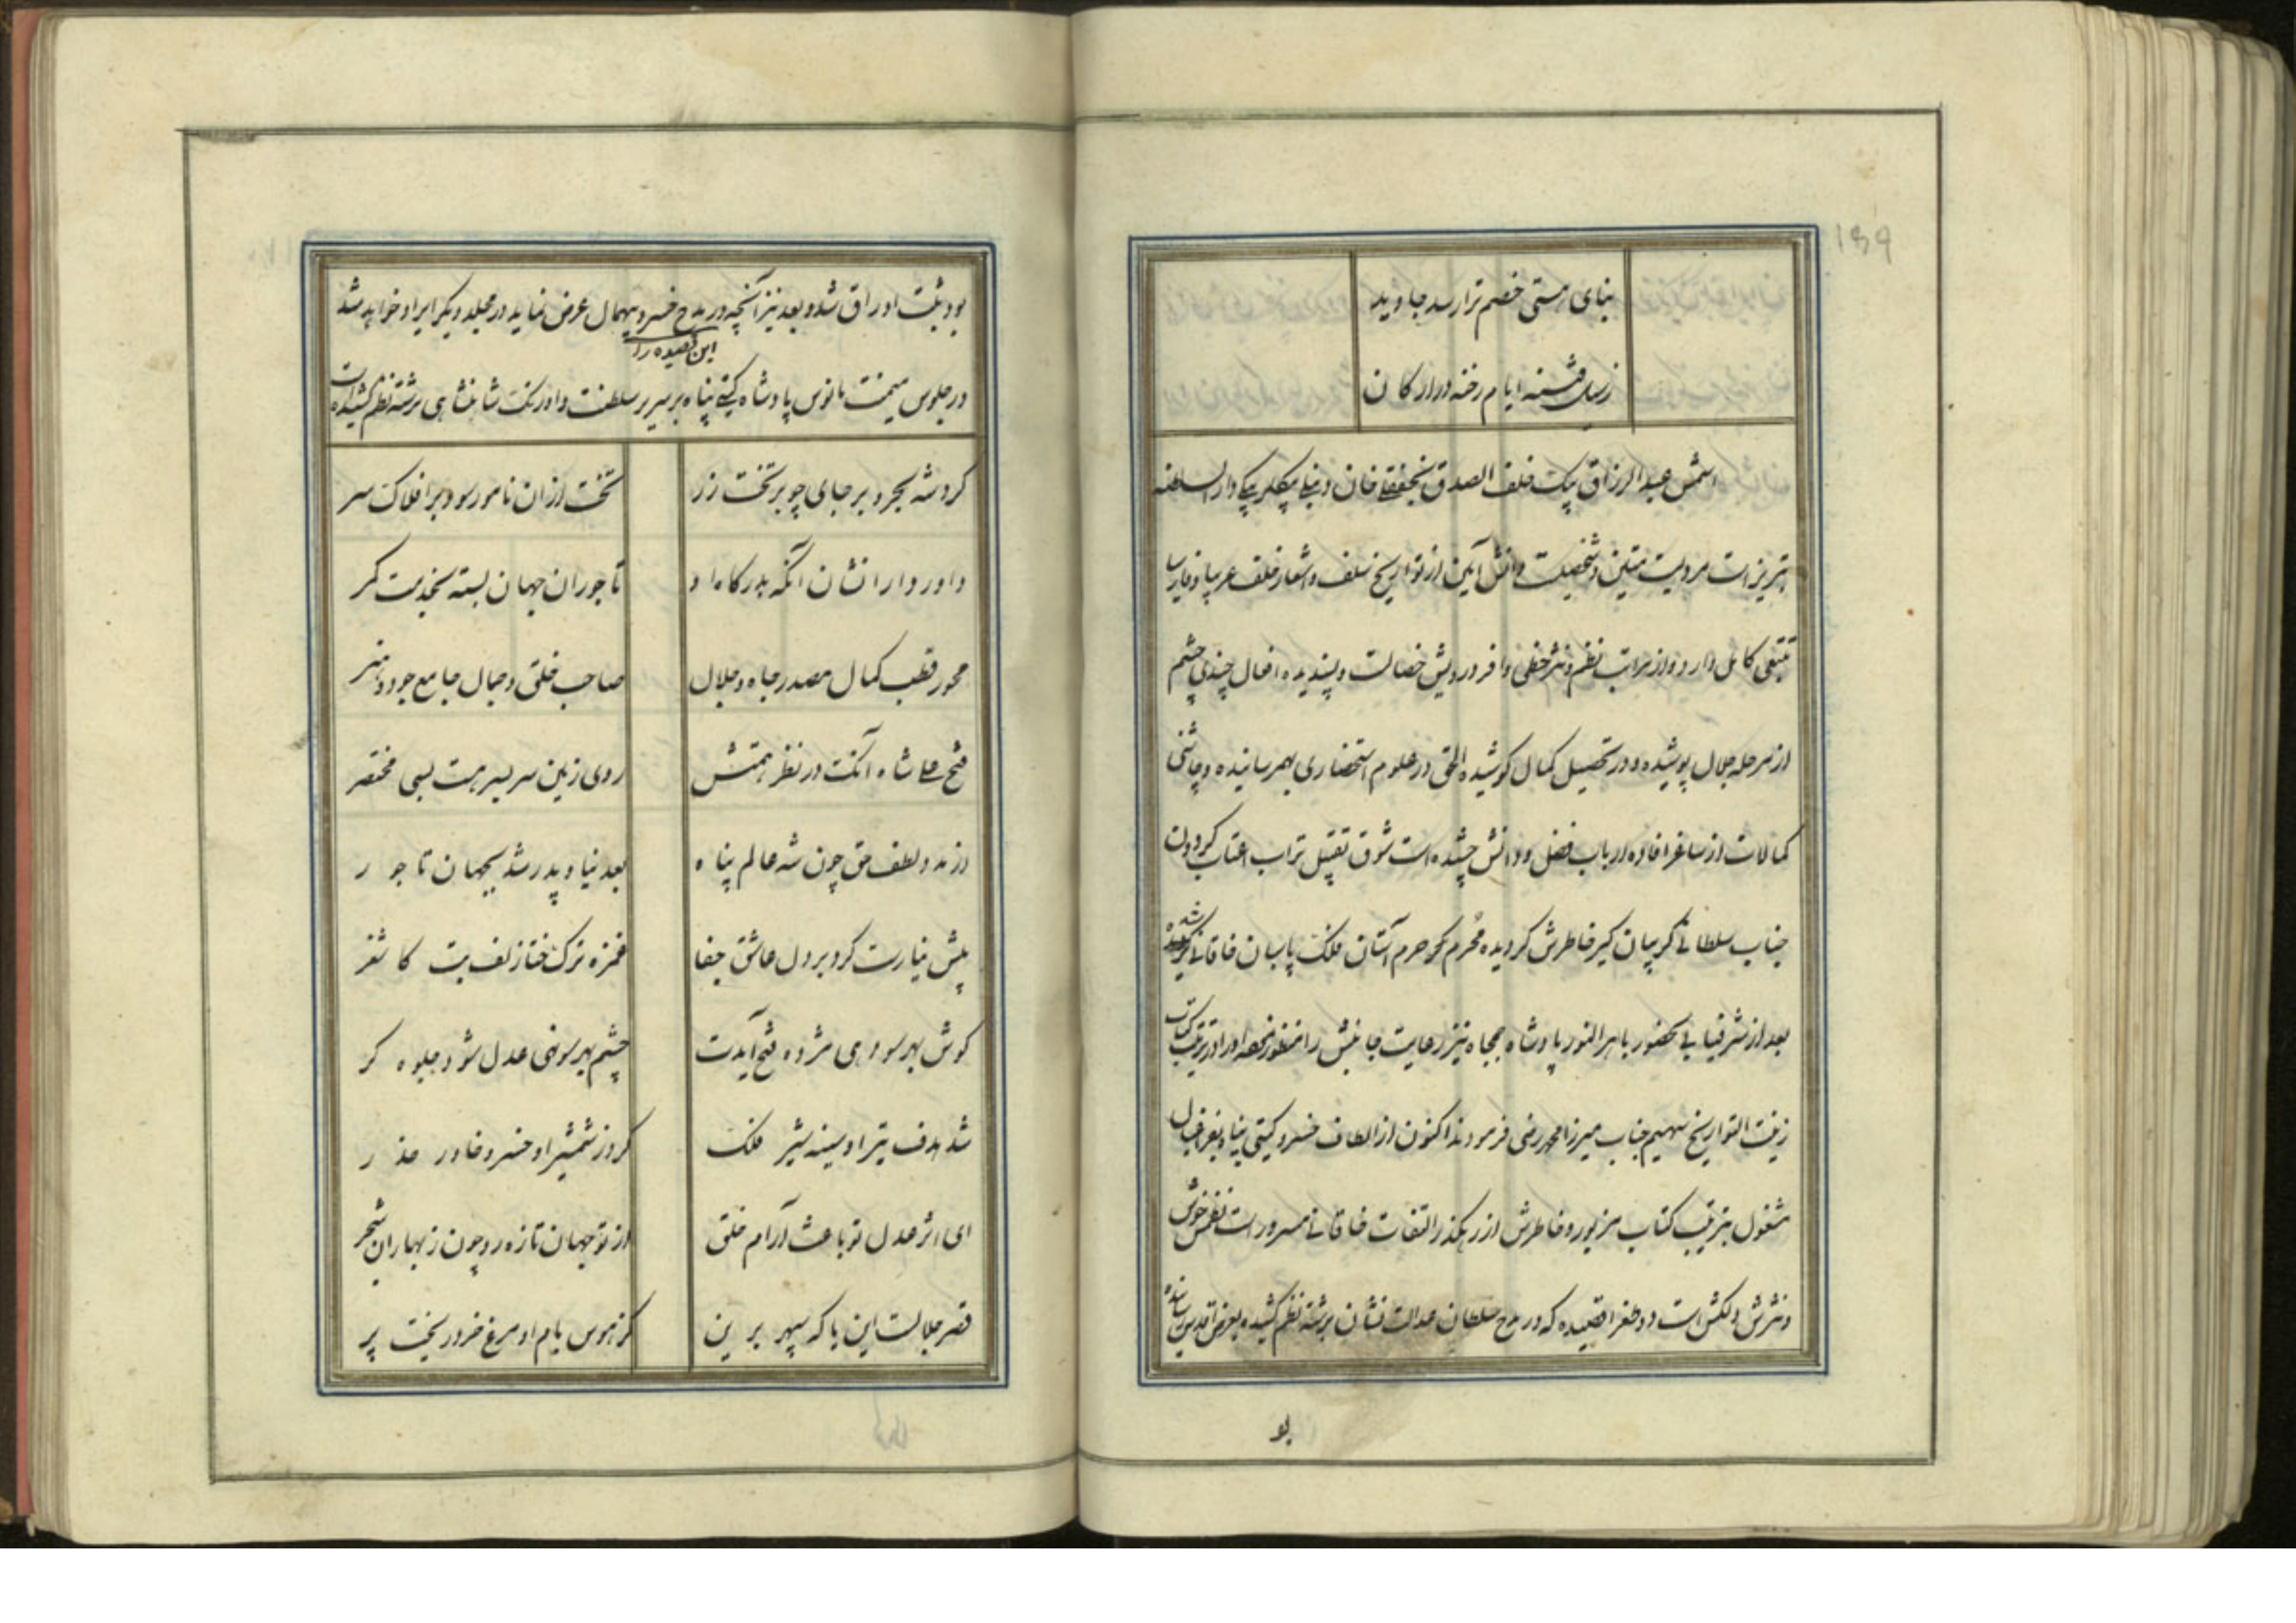 ۱۶۹
بنای هستی خصم ترا رسد جاوید
ز سیل فتنه ایام رخنه در ارکان
اسمش عبدالرزاق بیک خلف الصدق نجفقلی خان دنبلی بیکلربیکی دارالسلطنه
تبریز است مردیست متین و شخصیست دانش آیین از تواریخ سلف و اشعار خلف عربیا و فارسیا
تتبعی کامل دارد و از مراتب نظم و نثر حظی وافر درویش خصالست و پسندیده افعال چندی چشم
از مرحله جلال پوشیده و در تحصیل کمال کوشیده الحق در علوم استحضاری بهم رسانیده و چاشنی
کمالات از ساغر افاده ارباب فضل و دانش چشیده است شوق تقبیل تراب اعتاب گردون
جناب سلطانی گریبان گیر خاطرش گردیده محرم حرم آستان فلک پاسبان خاقانی گردیده شد
بعد از شرفیابی بحضور باهر النور پادشاه جمجاه نیز رعایت جانبش را منظور نموده او را در ترتیب کتاب
زینت التواریخ سهیم جناب میرزا محمد رضی فرمودند اکنون از الطاف خسرو گیتی پناه بفراغبال
مشغول بترتیب کتاب مزبور و خاطرش از رهگذر التفات خاقانی مسرور است نظمش خوش
و نثرش دلکش است دو طغرا قصیده که در مدح سلطان عدالت نشان برشته نظم کشیده بعرض اقدس رسانیده
بو
بود ثبت اوراق شد و بعد نیز آنچه در مدح خسرو بیهمال عرض نماید در مجلد دیگر ایراد خواهد شد
این قصیده را
در جلوس میمنت مانوس پادشاه گیتی پناه بر سریر سلطنت و اورنگ شاهنشاهی برشته نظم کشیده است
کرد شه بحر و بر جای چو بر تخت زر تخت از آن نامور سود بر افلاک سر
داور دارا نشان آنکه بدرگاه او تاجوران جهان بسته بخدمت کمر
محور قطب کمال مصدر جاه و جلال صاحب خلق و جمال جامع جود و هنر
فتح علی شاه آنک در نظر همتش روی زمین سر بسر هست بسی مختصر
از مدد لطف حق چون شه عالم پناه بعد نیا و پدر شد بجهان تاجور
پیش نیارست کرد بر دل عاشق جفا غمزه ترک ختا زلف بت کاشغر
گوش بهر سو دهی مژده فتح آیدت چشم بهر سو نهی عدل شود جلوه گر
شد هدف تیر او سینه شیر فلک کرد ز شمشیر او خسرو خاور حذر
ای اثر عدل تو باعث آرام خلق از تو جهان تازه رو چون ز بهاران شجر
قصر جلالست این یا که سپهر برین کز هوس بام او مرغ خرد ریخت پر